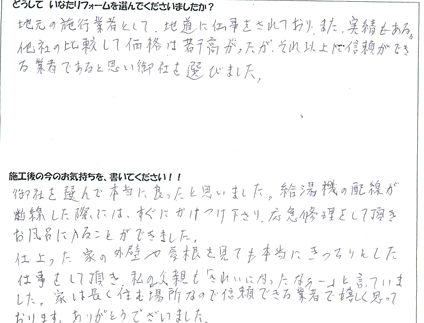 どうして いなだリフォームを選んでくださいましたか？
地元の施行業者として、地道に仕事をされており、また、実績もある。
他社の比較して価格は若干高かったが、それ以上に信頼ができ
る業者であると思い御社を選びました。
施工後の今のお気持ちを、書いてください！！
御社を選んで本当に良ったと思いました。給湯機の配線が
断線した際には、すぐにかけつけ下さり、応急修理をして頂き
お風呂に入ることができました。
仕上った 家の外壁や屋根を見ても本当にきっちりとした
仕事をして頂き、私の父親も「きれいになったなぁー」と言っていま
した。家は長く住む場所なので信頼できる業者で嬉しく思って
おります。ありがとうございました。